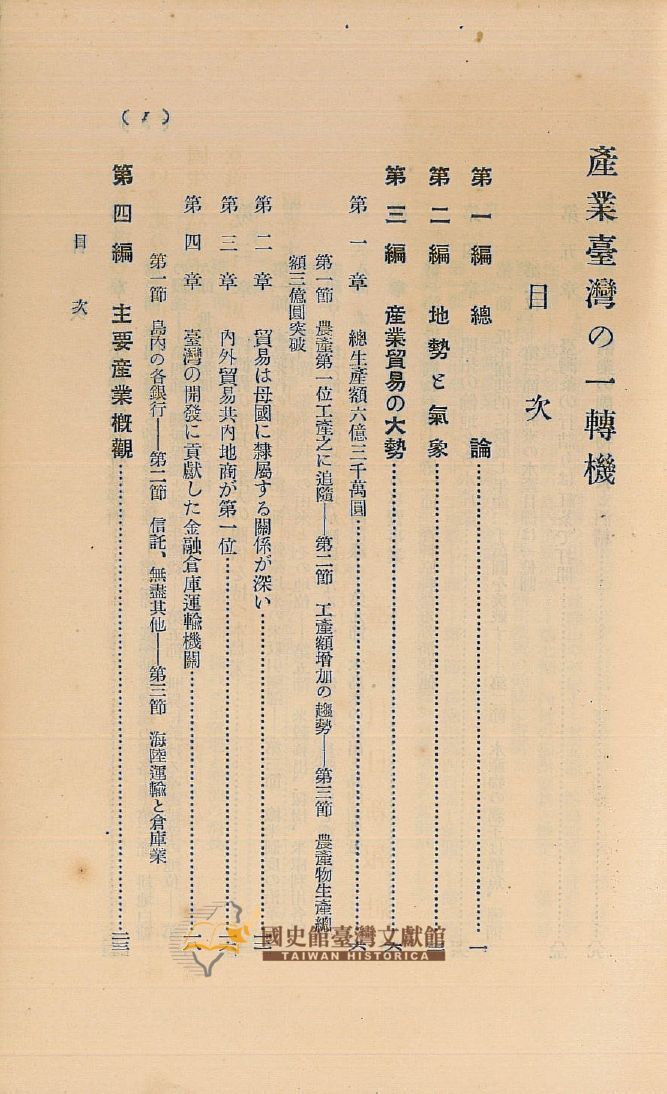 產業臺灣の一轉機
目次
第一編 總論……一
第二編 地勢と氣象……
第三編 產業貿易の大勢……六
第一章 總生產額六億三千萬圓……六
第一節 農產第一位工產之に追隨——第二節 工產額增加の趨勢——第三節 農產物生產總
額三億圓突破
第二章 貿易は母國に隸屬する關係が深い……
第三章 內外貿易共內地商が第一位……
第四章 臺灣の開發に貢獻した金融倉庫運輸機關……
第一節 島內の各銀行——第二節 信託、無盡其他——第三節 海陸運輸と倉庫業
第四編 主要產業概觀……二三
目次
國史館臺灣文獻館
TAIWAN HISTORICA